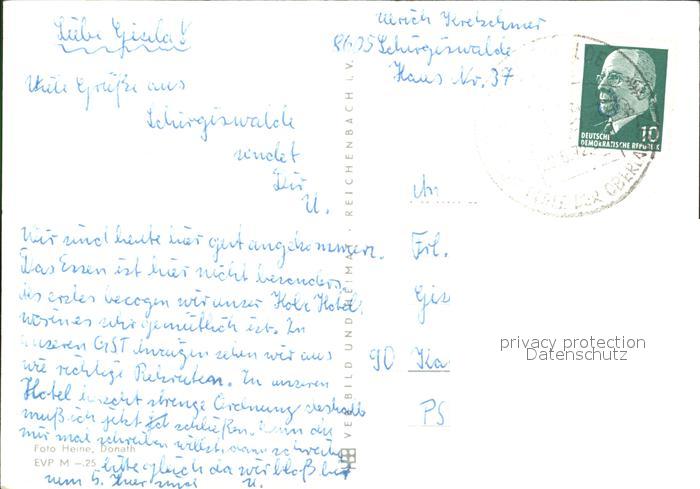 Liebe Gisela!
Viele Grüße aus
Schirgiswalde
sendet
Dir
U.
Wir sind heute hier gut angekommen.
Das Essen ist hier nicht besonders.
Als erstes bezogen wir unser Hotel
wo es sehr gemütlich ist. In
unseren GST Anzügen sehen wir aus
wie richtige Rekruten. In unseren
Hotel herscht strenge Ordnung deshalb
muß ich jetzt schließen. Wenn du
mir mal schreiben willst, dann schreibe
bitte gleich da wir bloß bis
zum 5. hier sind U.
Foto Heine, Donath
EVP M –.25
VERLAG BILD UND HEIMAT · REICHENBACH I. V.
Ulrich Kretschmer
8605 Schirgiswalde
Haus Nr. 37
DEUTSCHE
DEMOKRATISCHE REPUBLIK
10
PERLE DER OBERLA
An
Frl.
Gis
90 Ka
PS
privacy protection
Datenschutz